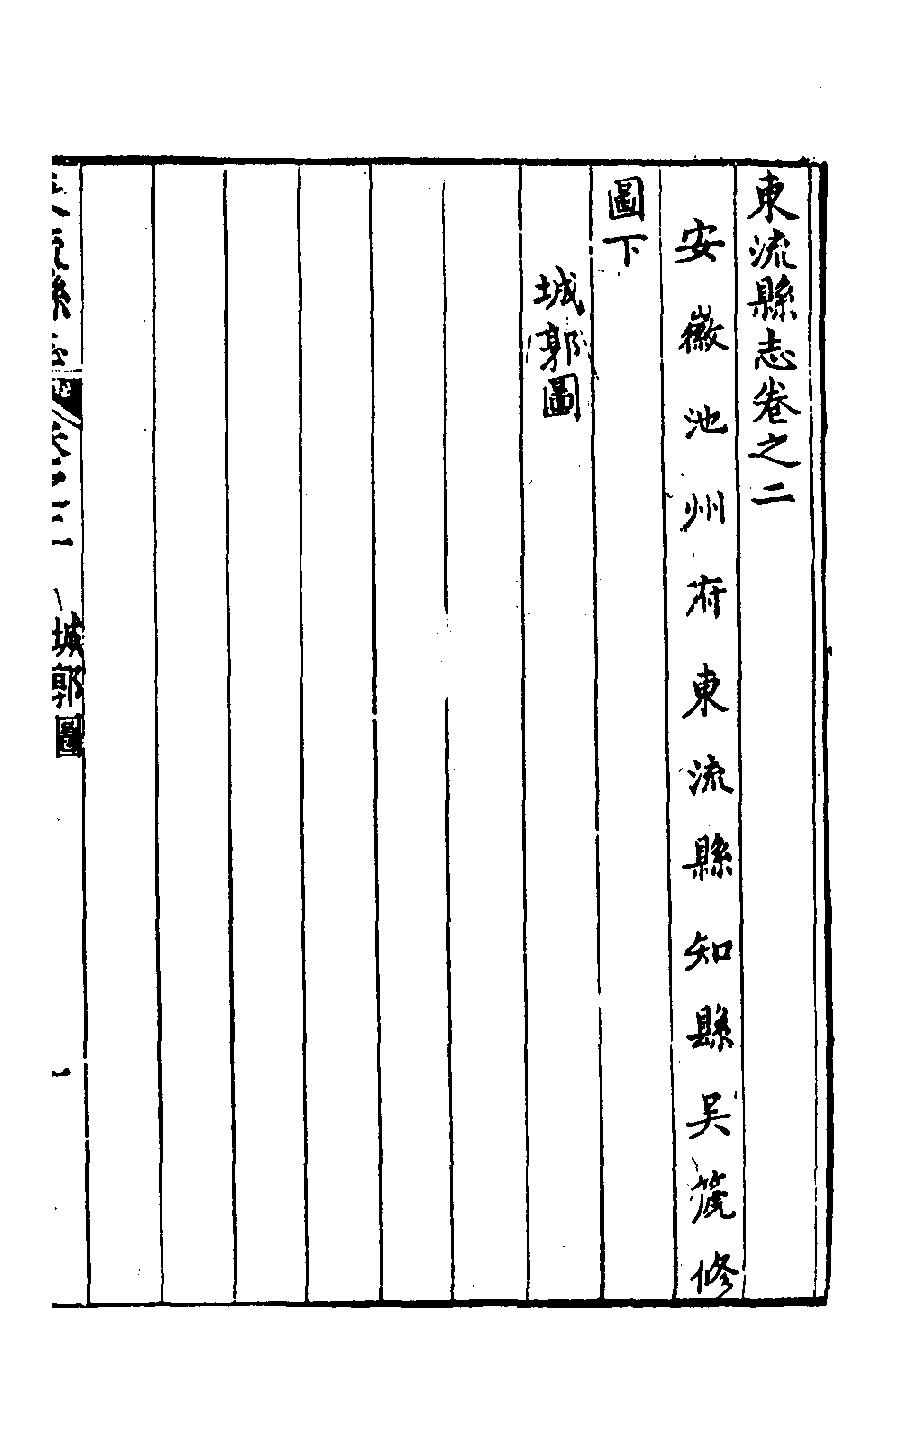 東流縣志卷之二
安徽池州府東流縣知縣吴篪修
圖下
城郭圖
東流縣志 卷之二 城郭圖 一